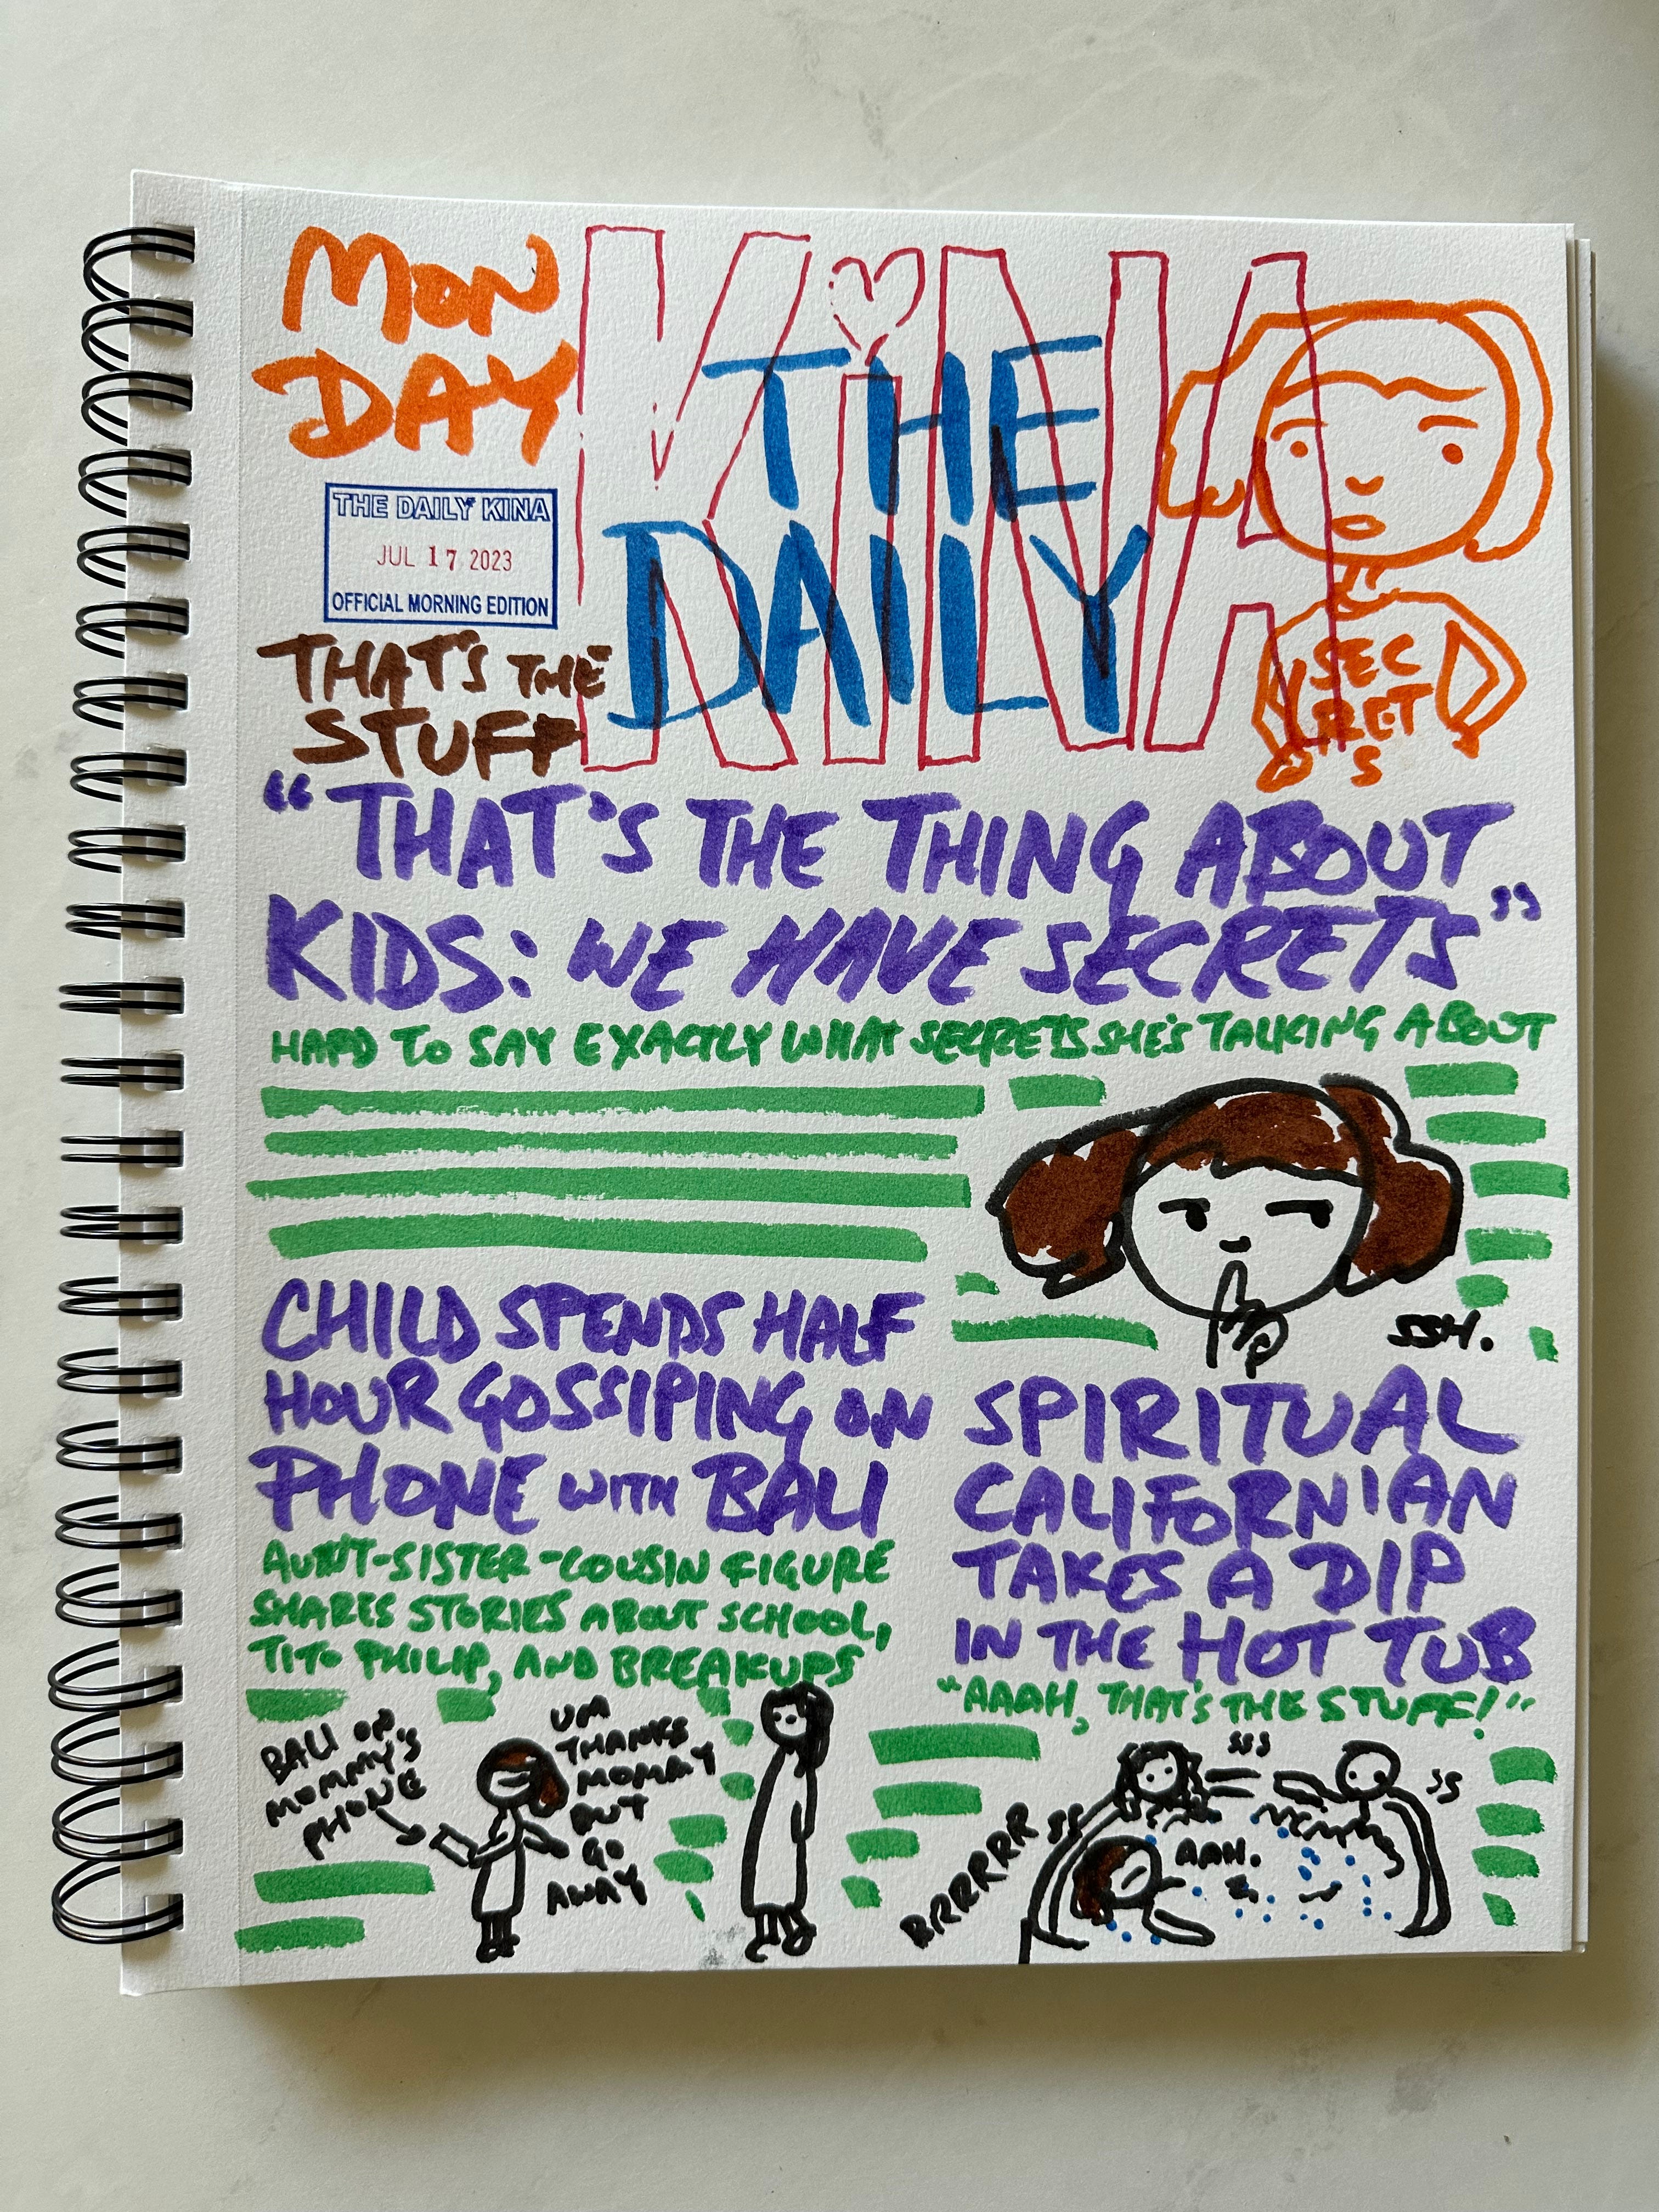 MON
DAY
KiNA
THE
DAILY
THE DAILY KINA
JUL 17 2023
OFFICIAL MORNING EDITION
THAT'S THE
STUFF
SEC
RET
S
"THAT'S THE THING ABOUT
KIDS: WE HAVE SECRETS"
HARD TO SAY EXACTLY WHAT SECRETS SHE'S TALKING ABOUT
SSH.
CHILD SPENDS HALF
HOUR GOSSIPING ON
PHONE WITH BALI
AUNT-SISTER-COUSIN FIGURE
SHARES STORIES ABOUT SCHOOL,
TITO PHILIP, AND BREAKUPS
BALI ON
MOMMY'S
PHONE
UM
THANKS
MOMMY
BUT
GO
AWAY
SPIRITUAL
CALIFORNIAN
TAKES A DIP
IN THE HOT TUB
"AAAH, THAT'S THE STUFF!"
BRRRRR
SS
SSS
SS
AAH.